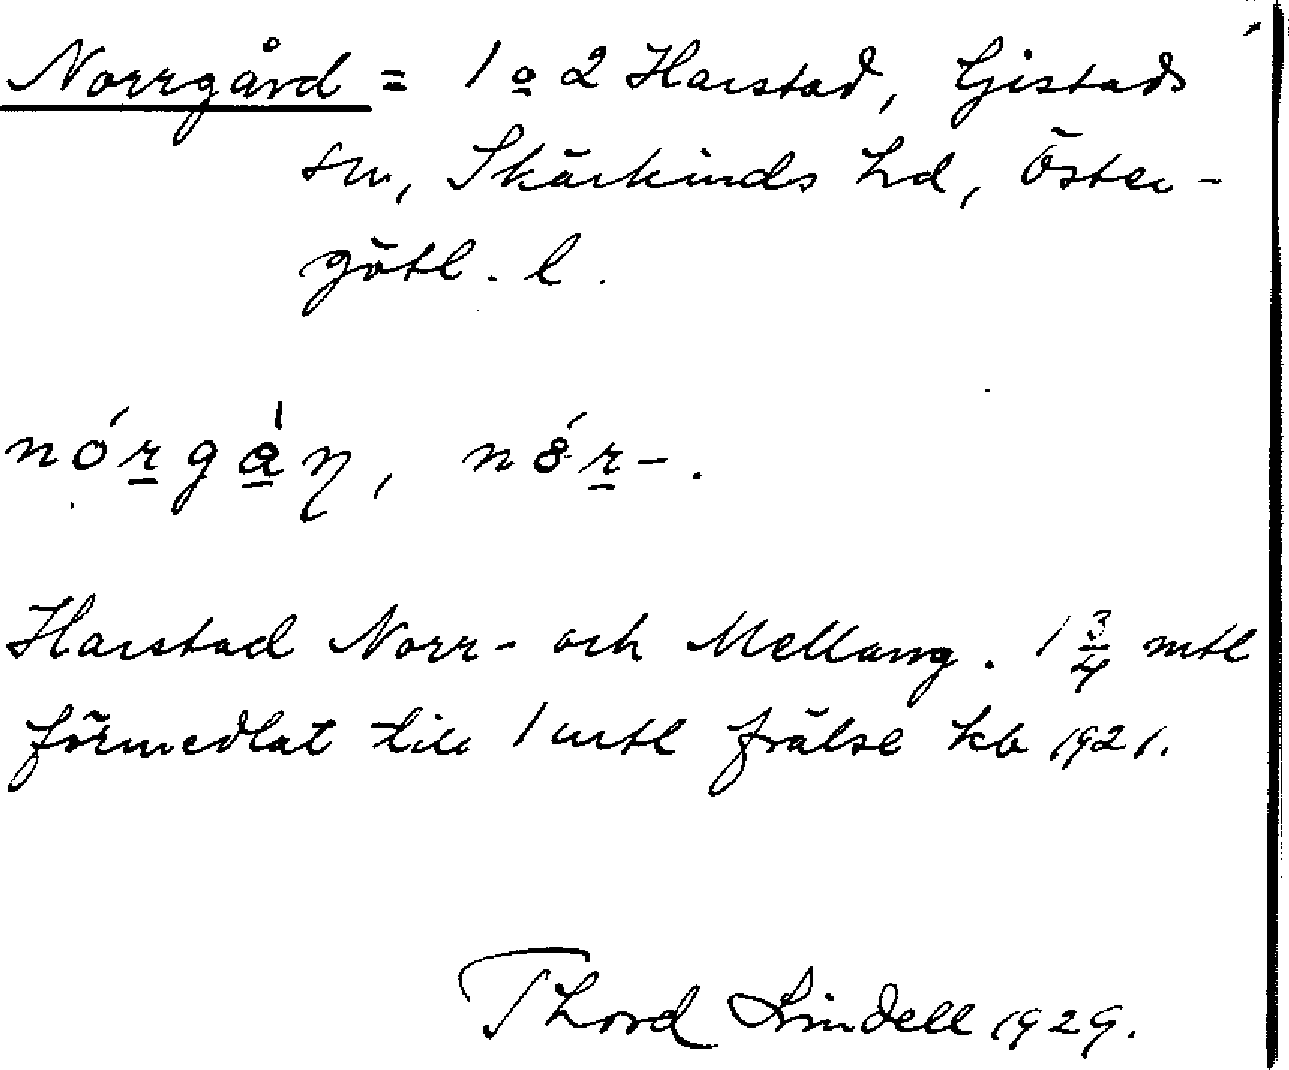 Norrgård = 1 o 2 Harstad, Gistads
sn, Skärkinds hd, Öster-
götl. l.
nórgàn,
Harstad Norr- och Mellang. 1 3/4 mtl
förmedlat till 1 mtl frälse kb 1921.
Thord Lindell 1929.